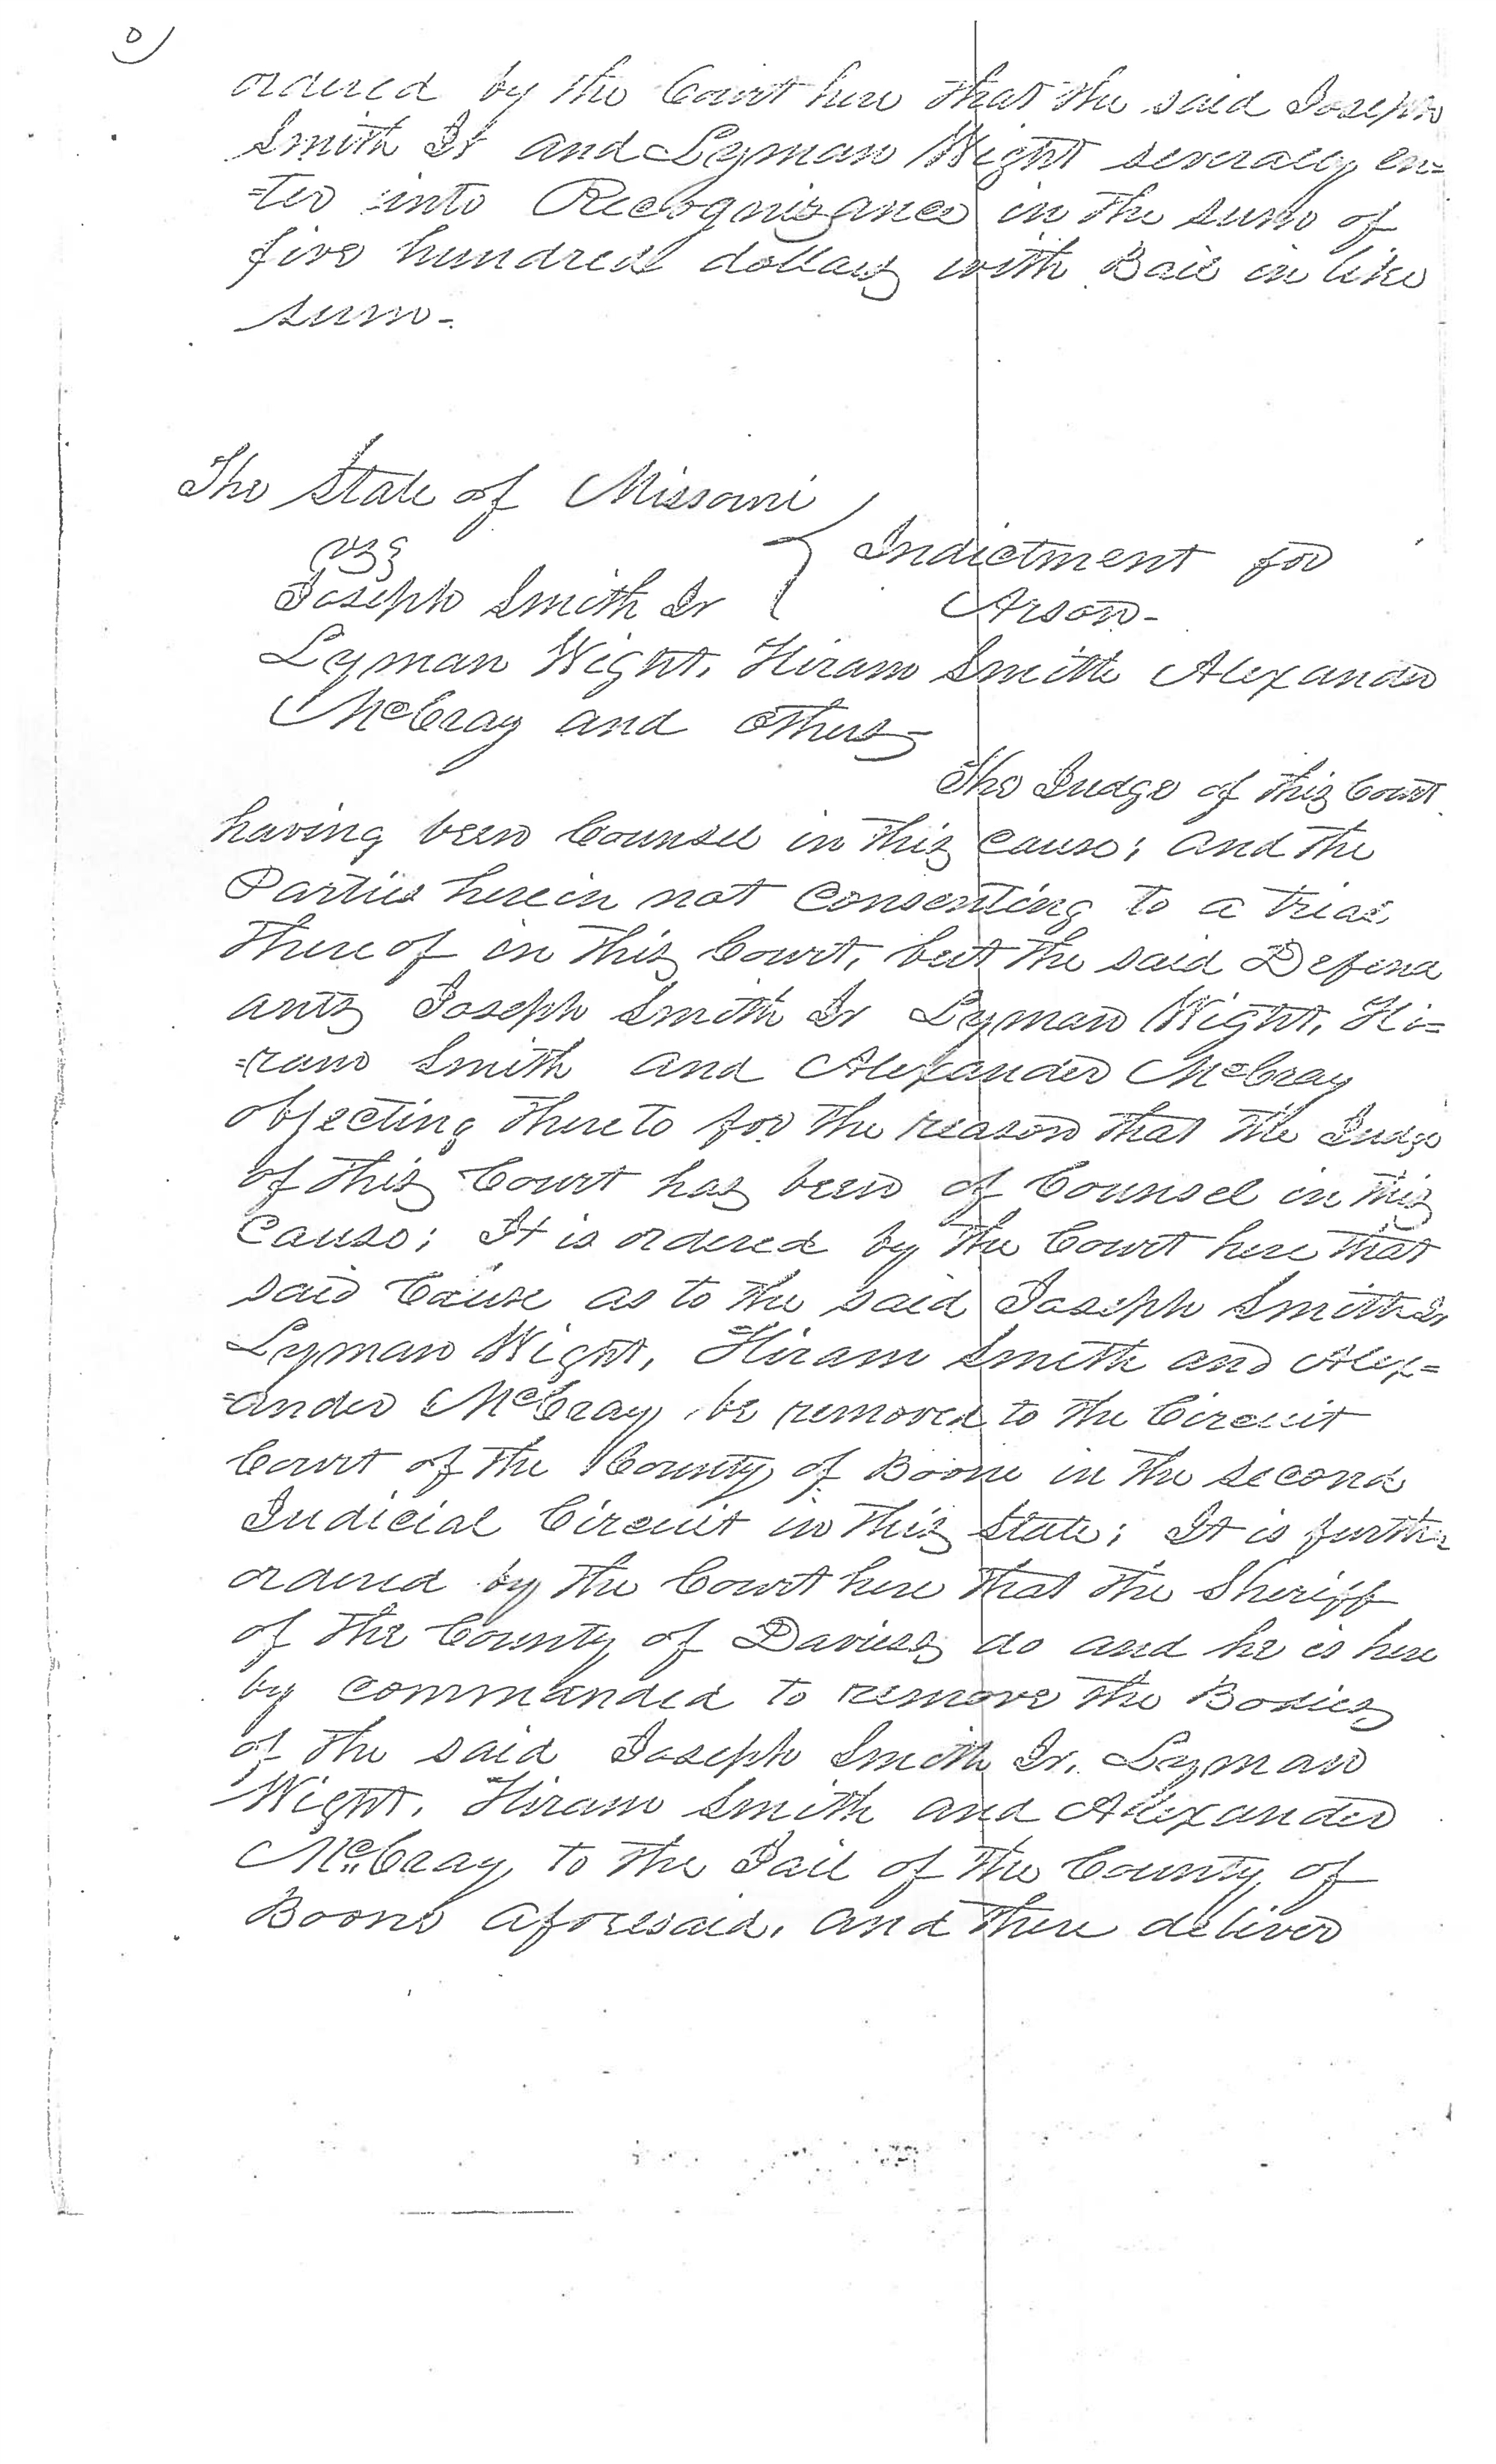 ordered by the Court here that the said Joseph
Smith Jr and Lyman Wight severally en=
=ter into Recognizance in the sum of
five hundred dollars with Bail in like
sum-
The State of Missouri
vs
Indictment for
Joseph Smith Jr
Arson-
Lyman Wight, Hiram Smith Alexander
McCray and others-
The Judge of this Court
having been Counsel in this cause; and the
Parties herein not consenting to a trial
thereof in this Court, but the said Defend
ants Joseph Smith Jr Lyman Wight, Hi=
=ram Smith and Alexander McCray
objecting thereto for the reason that the Judge
of this Court has been of Counsel in this
Cause; It is ordered by the Court here that
said Cause as to the said Joseph Smith Jr
Lyman Wight, Hiram Smith and Alex=
=ander McCray be removed to the Circuit
Court of the County of Boone in the second
Judicial Circuit in this State; It is further
ordered by the Court here that the Sheriff
of the County of Daviess do and he is here
by commanded to remove the Bodies
of the said Joseph Smith Jr. Lyman
Wight, Hiram Smith and Alexander
McCray to the Jail of the County of
Boone aforesaid, and there deliver